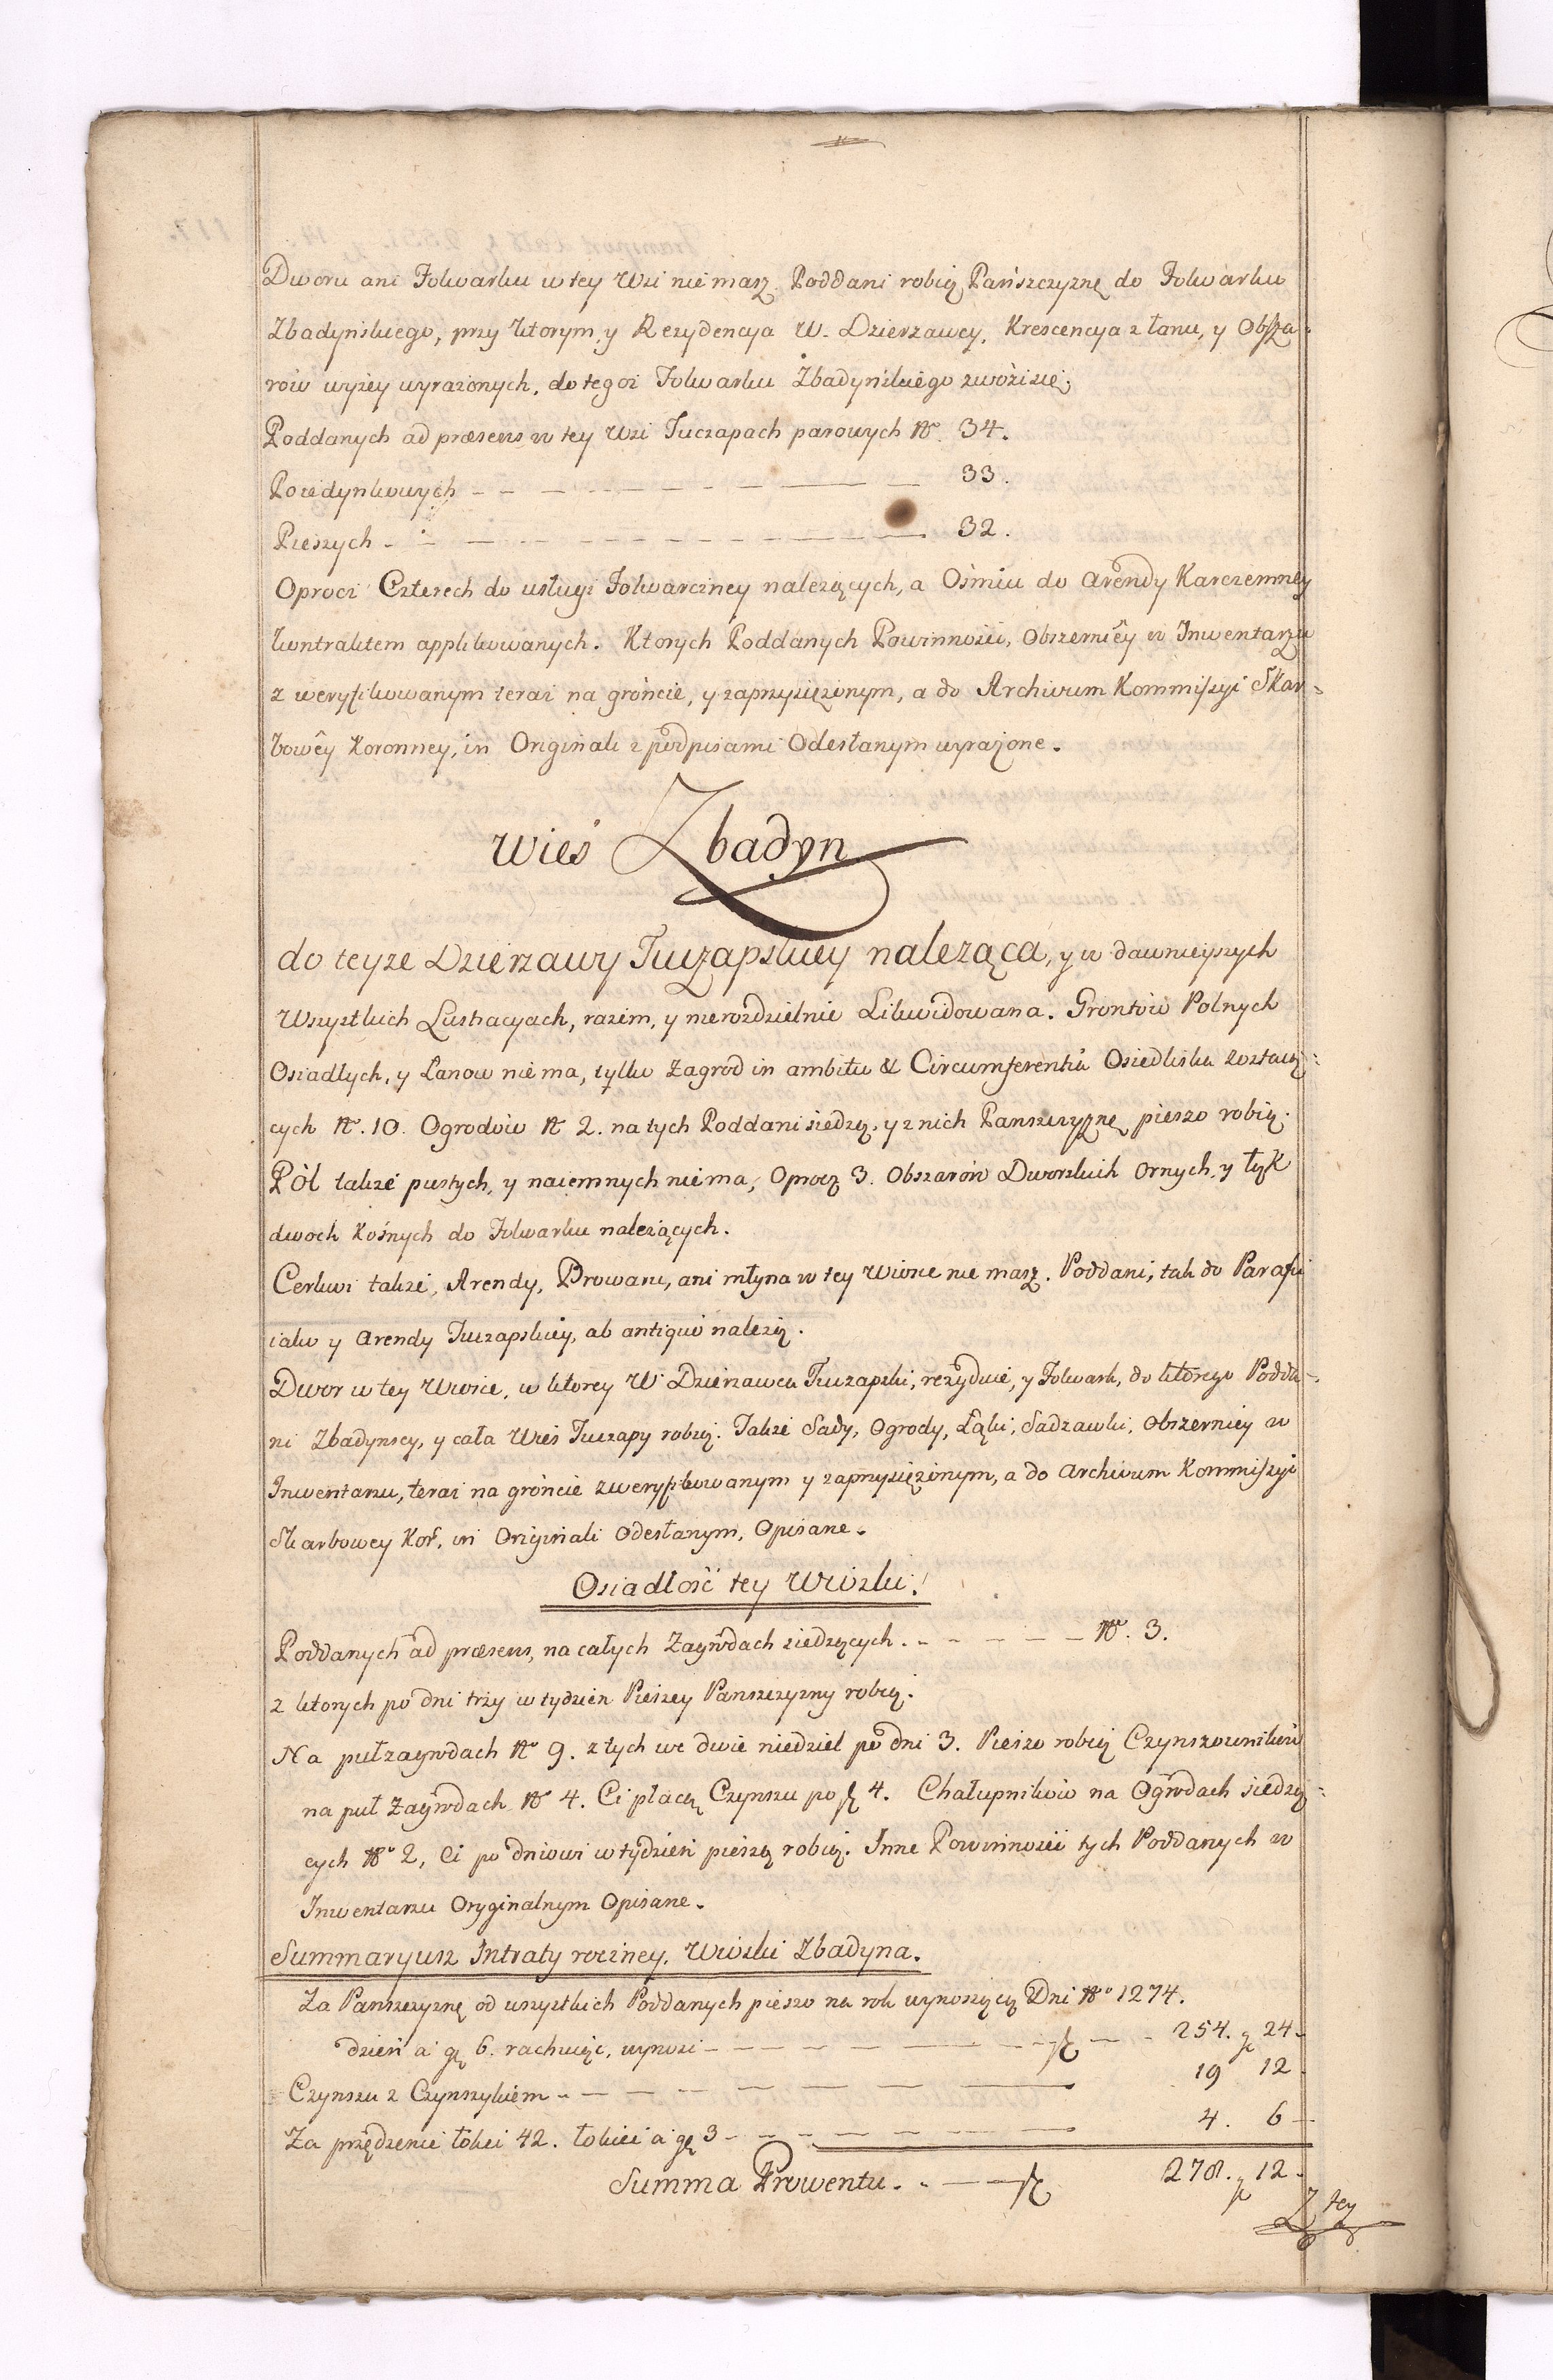 Dworu ani Folwarku w tey Wsi nie masz. Poddani robią Pańszczyznę do Folwarku
Zbadyńskiego, przy ktorym, y Rezydencya W. Dzierzawcy. Krescencya z łanu, y Obsza-
rów wyżey wyrażonych, do tegoż Folwarku Zbadyńskiego zwozi się.
Poddanych ad præsens w tey Wsi Tuczapach parowych No. 34.
Poiedynkowych 33.
Pieszych 32.
Oprocz Czterech do usługi Folwarczney nalezących, a Ośmiu do Arendy Karczemney
kontraktem applikowanych. Ktorych Poddanych Powinności, Obszerniey w Inwentarzu
zweryfikowanym teraz na gróncie, y zaprzysiężonym, a do Archivum Kommissyi Skar-
bowey Koronney, in Originali z podpisami Odesłanym wyrażone.
Wieś Zbadyn
do teyze Dzierzawy Tuczapskiey naleząca, y w dawnieyszych
Wszystkich Lustracyach, razem, y nierozdzielnie Likwidowana. Grontów Polnych
Osiadłych, y Łanow nie ma, tylko Zagród in ambitu & Circumferentia Osiedliska zostaią-
cych No. 10. Ogrodów No 2. na tych Poddani siedzą, y z nich Panszczyznę pieszo robią.
Pól także pustych, y naiemnych nie ma, Oprocz 3. Obszarów Dworskich Ornych, y Łąk
dwoch Kośnych do Folwarku należących.
Cerkwi także, Arendy, Browaru, ani młyna w tey Wiosce nie masz. Poddani, tak do Parafii
iako y Arendy Tuczapskiey, ab antiquo należą.
Dwor w tey Wiosce, w ktorey W. Dzierzawca Tuczapski, rezyduie, y Folwark, do ktorego Podda-
ni Zbadynscy, y cała Wieś Tuczapy robią. Także Sady, Ogrody, Łąki, Sadzawki, Obszerniey w
Inwentarzu, teraz na gróncie zweryfikowanym y zaprzysiężonym, a do Archivum Kommissyi
Skarbowey Kor. in Originali Odesłanym, Opisane.
Osiadłość tey Wioski.
Poddanych ad præsens, na całych Zagrodach siedzących No. 3.
z ktorych po dni trzy w tydzien Pieszey Panszczyzny robią.
Na puł zagrodach No 9. z tych we dwie niedziel po dni 3. Pieszo robią Czynszownikow
na puł Zagrodach No 4. Ci płacą Czynszu po zł 4. Chałupnikow na Ogrodach siedzą-
cych No 2, Ci po dniowi w tydzień pieszo robią. Inne Powinności tych Poddanych w
Inwentarzu Oryginalnym Opisane.
Summaryusz Intraty roczney, Wioski Zbadyna.
Za Panszczyznę od wszystkich Poddanych pieszo na rok wynoszącą Dni No 1274.
dzień a gr 6. rachuiąc, wynosi zł 254. gr 24
Czynszu z Czynszykiem 19 12
Za przędzenie łokci 42. łokieć a gr 3 4. 6
Summa Prowentu zł 278. gr 12
Z tey